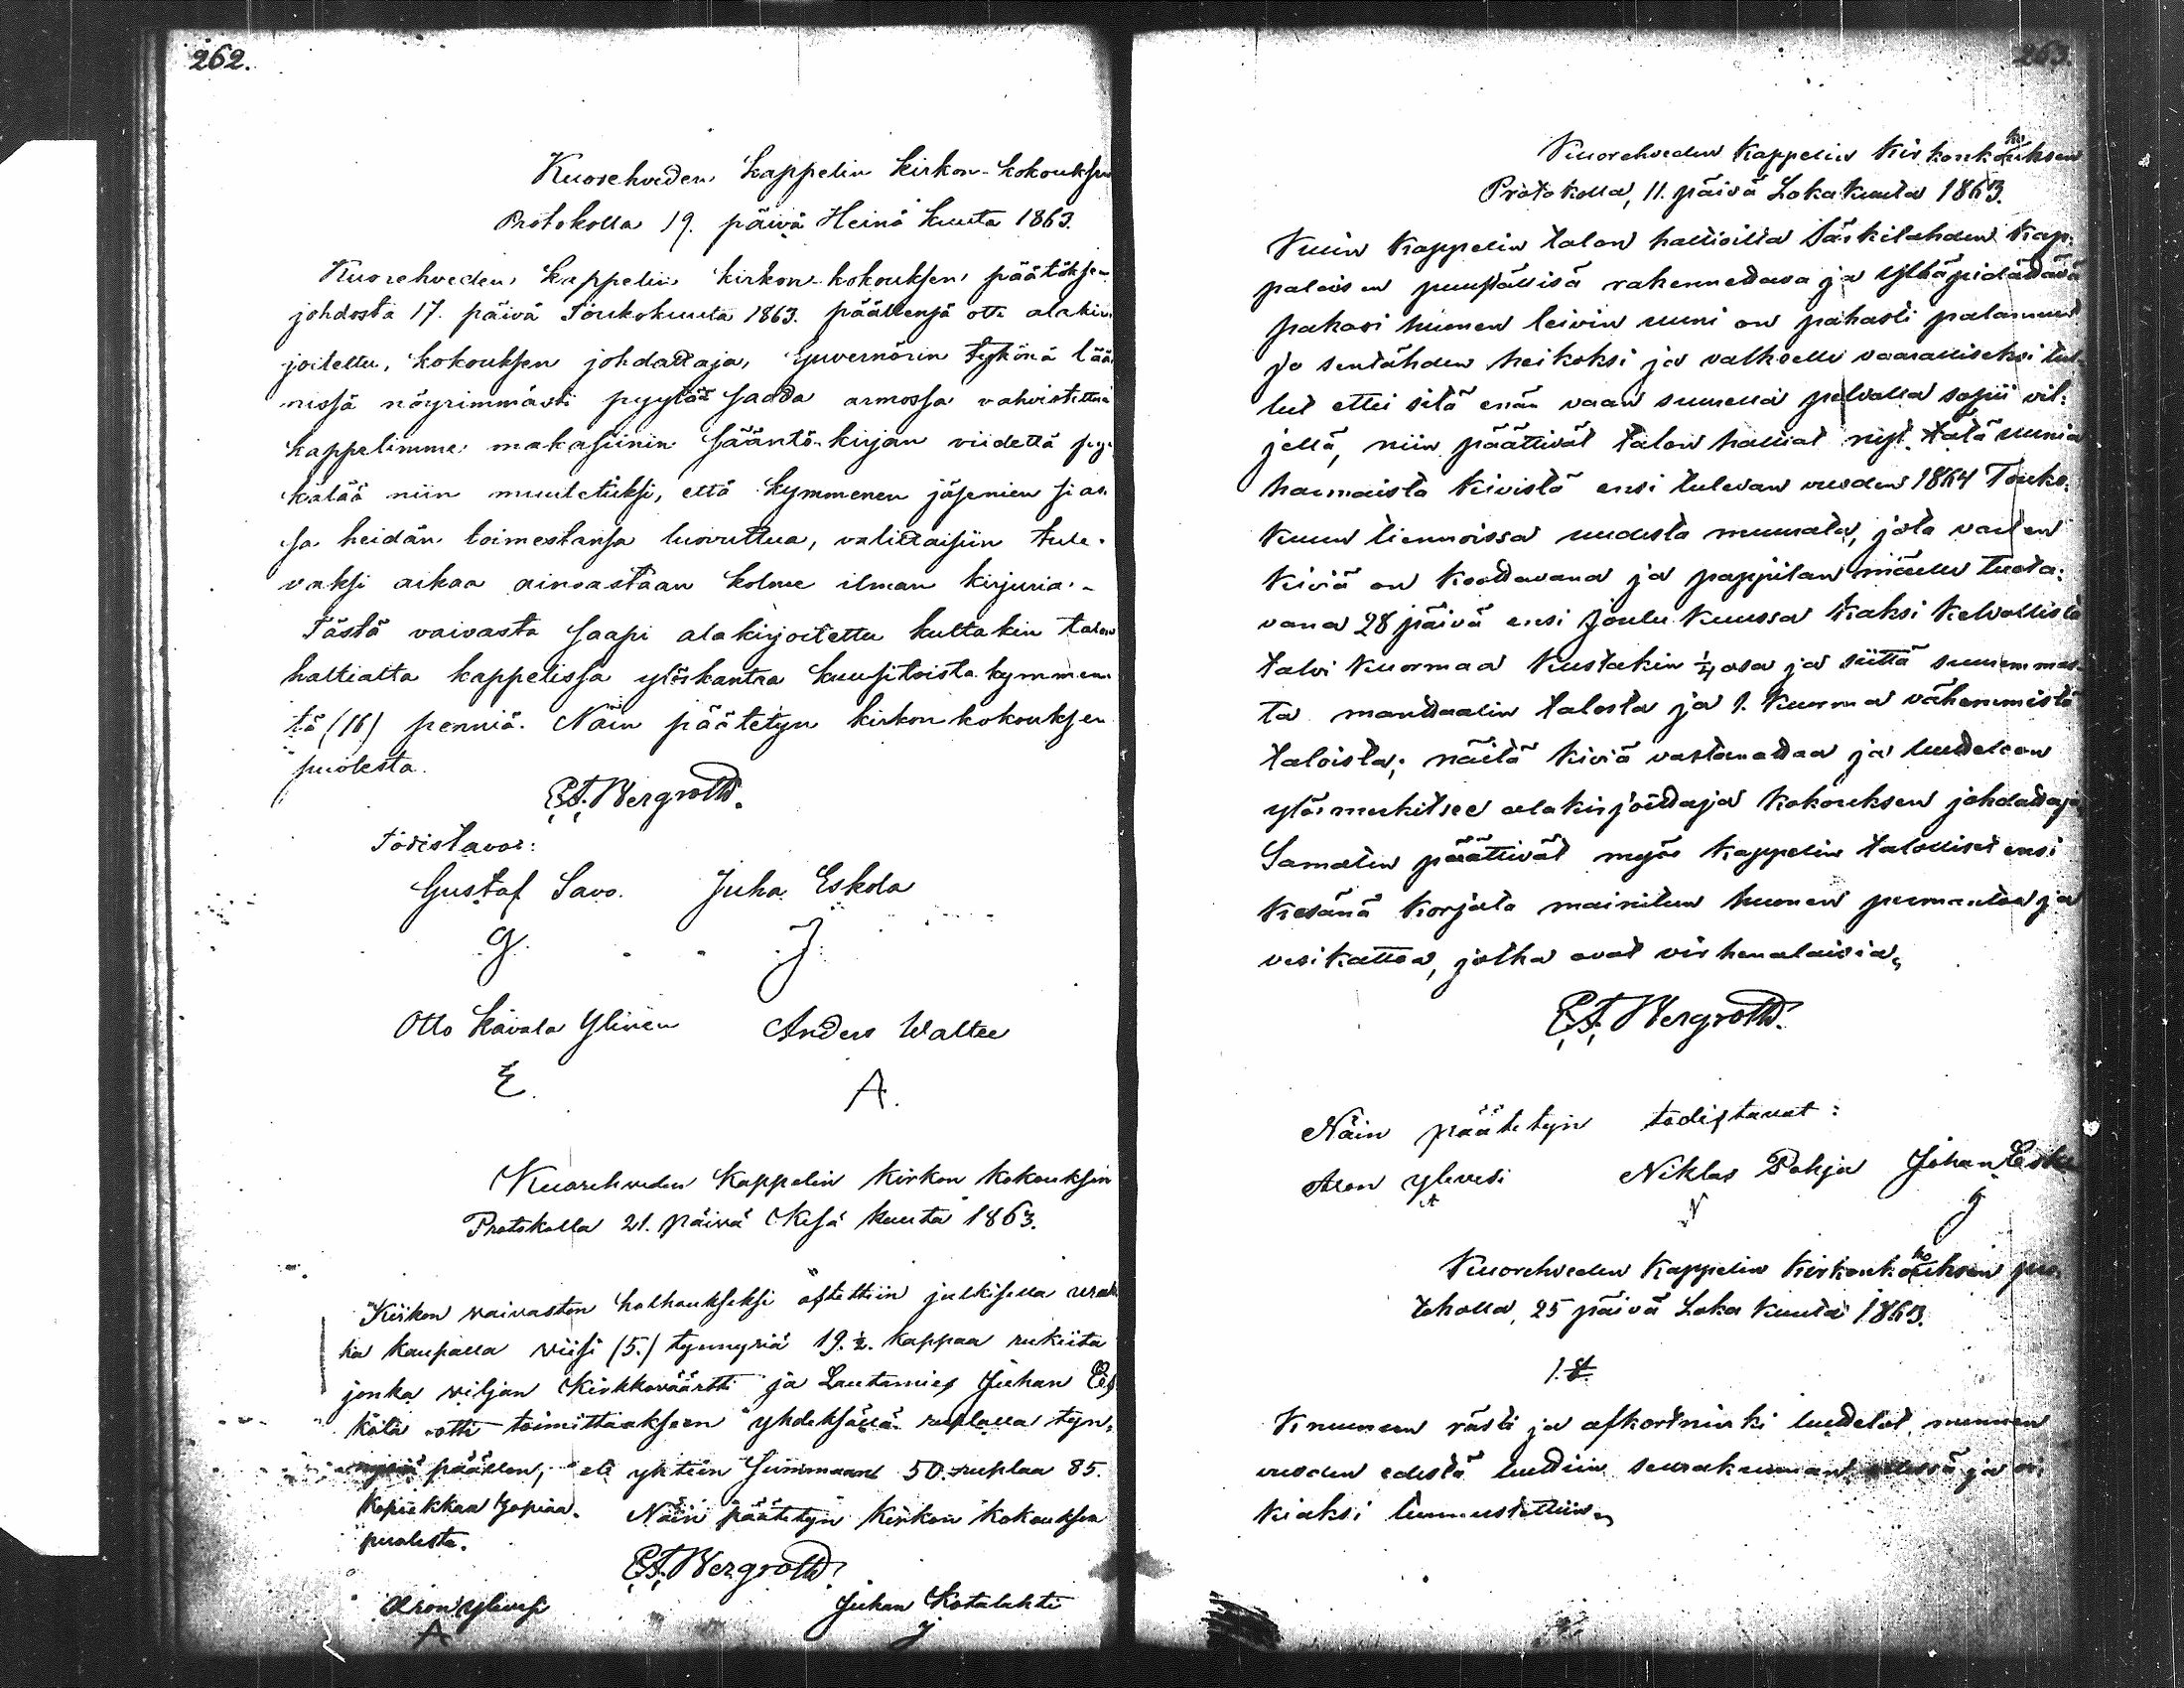 262.
Kuorehveden kappelin kirkon-kokouksen
Protokolla 19. päivä Heinä kuuta 1863.
Kuorehveden kappelin kirkon-kokouksen päätöksen
johdosta 17. päivä Toukokuuta 1863. päällensä otti alakir-
joitettu, kokouksen johdattaja, guvernörin tykönä lää-
nissä nöyrimmästi pyytää saada armossa vahvistettua
kappelimme makasiinin sääntö-kirjan viidettä py-
kälää niin muutetuksi, että kymmenen jäsenien sias-
sa heidän toimestansa luovuttua, valittaisiin tule-
vaksi aikaa ainoastaan kolme ilman kirjuria.-
Tästä vaivasta saapi alakirjoitettu kultakin talon
haltialta kappelissa ylöskantaa kuusitoista kymmen-
tä (16) penniä. Näin päätetyn kirkon kokouksen
puolesta.
E.A. Bergroth.
Todistavat:
Gustaf Savo. Juha Eskola
G. J.
Otto Kävälä Ylinen Anders Waltee
E. A.
Kuorehveden Kappelin Kirkon Kokouksen
Protokolla 21. päivä Kesä kuuta 1863.
Kirkon vaivasten holhoukseksi ostettiin julkisella
ha kaupalla viisi (5.) tynnyriä 19.½. kappaa rukiita
jonka viljan Kirkkoväärtti ja Lautamies Juhan Es
kola otti toimittaakseen yhdeksällä ruplalla tyn-
nyriä päällen, eli yhteen summaan 50. ruplaa 85.
kopiekkaa hopiaa. Näin päätetyn Kirkon Kokouksen
puolesta.
E.A. Bergroth.
Aron Ylivesi Juhan Kotalahti
A J
263.
Kuorehveden Kappelin Kirkonkokouksen
Protokolla, 11. päivä Lokakuuta 1863.
Kuin Kappelin talon haltioilta Särkilahden Kap-
palaisen puuställisä rakennettava ja ylläpidättävä
pakari huonen leivin uuni on pahasti palannut
ja sentähden heikoksi ja valkealle vaaralliseksi tul-
lut ettei sitä enään vaan suurella pelvolla sopii vil-
jellä, niin päättivät talon haltiat nyt tätä uunia
harmaista kivistä ensi tulevan vuoden 1864 Touko-
kuun tiennoissa uudesta muurata, jota varten
kiviä on koottavana ja pappilan mäelle tuota-
vana 28 päivä ensi Joulu kuussa kaksi kelvollista
talvi kuormaa kustakin ¼ osa ja siittä suuremmas-
ta manttaalin talosta ja 1. kuorma vähemmistä
taloista; näitä kiviä vastanottaa ja luetteloon
ylösmerkitsee alakirjoittaja Kokouksen johdattaja
Samaten päättivät myös Kappelin talolliset ensi
kesänä korjata mainitun huonen permantoa ja
vesikattoa, jotka ovat virhenalaisia.
E.A. Bergroth.
Näin päätetyn todistavat:
Aron Ylivesi Niklas Pohja Johan Esko
A N J
Kuorehveden Kappelin Kirkonkokouksen pro-
tokolla, 25 päivä Loka kuuta 1863.
1.§.
Kruunun rästi ja afkortninki luettelot, mennen
vuoden edestä luettiin seurakunnan edessä ja oi-
kiaksi tunnustettiin.